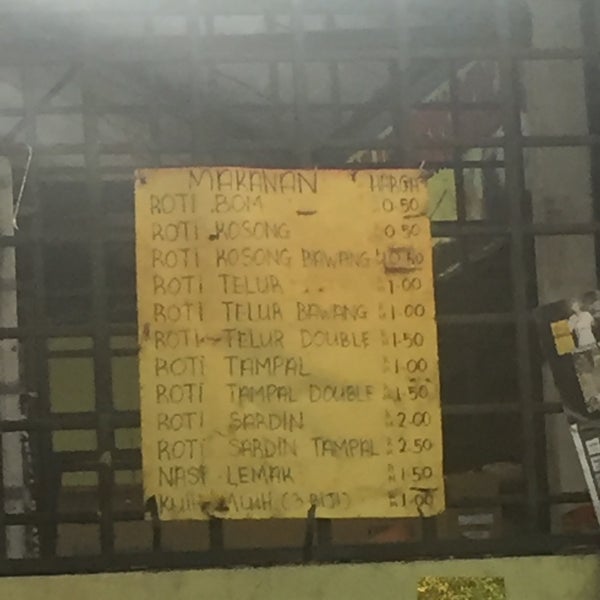 MAKANAN HARGA
ROTI BOM 0.50
ROTI KOSONG 0.50
ROTI KOSONG BAWANG 0.50
ROTI TELUR RM 1.00
ROTI TELUR BAWANG RM 1.00
ROTI TELUR DOUBLE RM 1.50
ROTI TAMPAL RM 1.00
ROTI TAMPAL DOUBLE RM 1.50
ROTI SARDIN RM 2.00
ROTI SARDIN TAMPAL RM 2.50
NASI LEMAK RM 1.50
(3 BIJI) RM 1.00